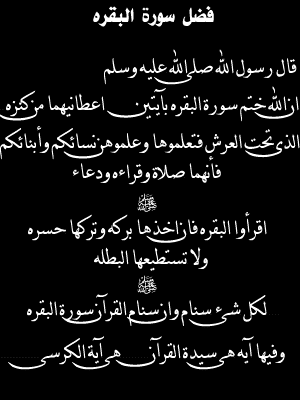 فضل سورة البقره
قال رسول الله صلى الله عليه وسلم
ان الله ختم سورة البقره بآيتين اعطانيهما من كنزه
الذي تحت العرش فتعلموها وعلموهن نسائكم وأبنائكم
فأنهما صلاة وقراءه ودعاء
ﷺ
اقرأوا البقره فان اخذها بركه وتركها حسره
ولا تستطيعها البطله
ﷺ
لكل شئ سنام وان سنام القرآن سورة البقره
وفيها آيه هى سيدة القرآن هى آية الكرسى